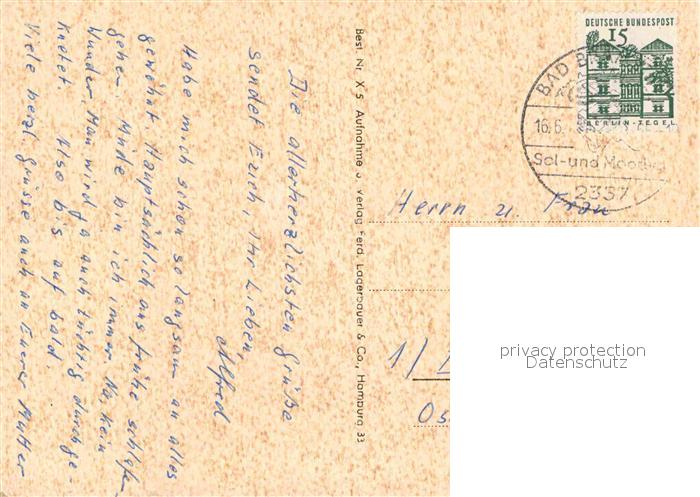 Die allerherzlichsten Grüße
sendet Euch, Ihr Lieben,
Alfred
Habe mich schon so langsam an alles
gewöhnt. Hauptsächlich ans frühe schlafen
gehen. Müde bin ich immer. Na, kein
Wunder. Man wird ja auch tüchtig durchge-
knetet. Also bis auf bald.
Viele herzl. Grüsse auch an Euere Mutter
Best. Nr. X 5 Aufnahme u. Verlag Ferd. Lagerbauer & Co., Hamburg 33
DEUTSCHE BUNDESPOST
15
BERLIN-TEGEL
BAD
16.6.
Sol-und Moorbad
2357
Herrn u. Frau
1/
privacy protection
Datenschutz